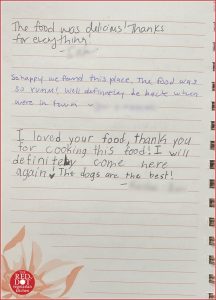 The food was delicous! Thanks
for everything!
So happy we found this place. The food was
so yumm! Well definetley be back when
were in town
I loved your food, thank you
for cooking this food! I will
definitely come here
again. The dogs are the best!
RED
DOT
vegetarian
kitchen